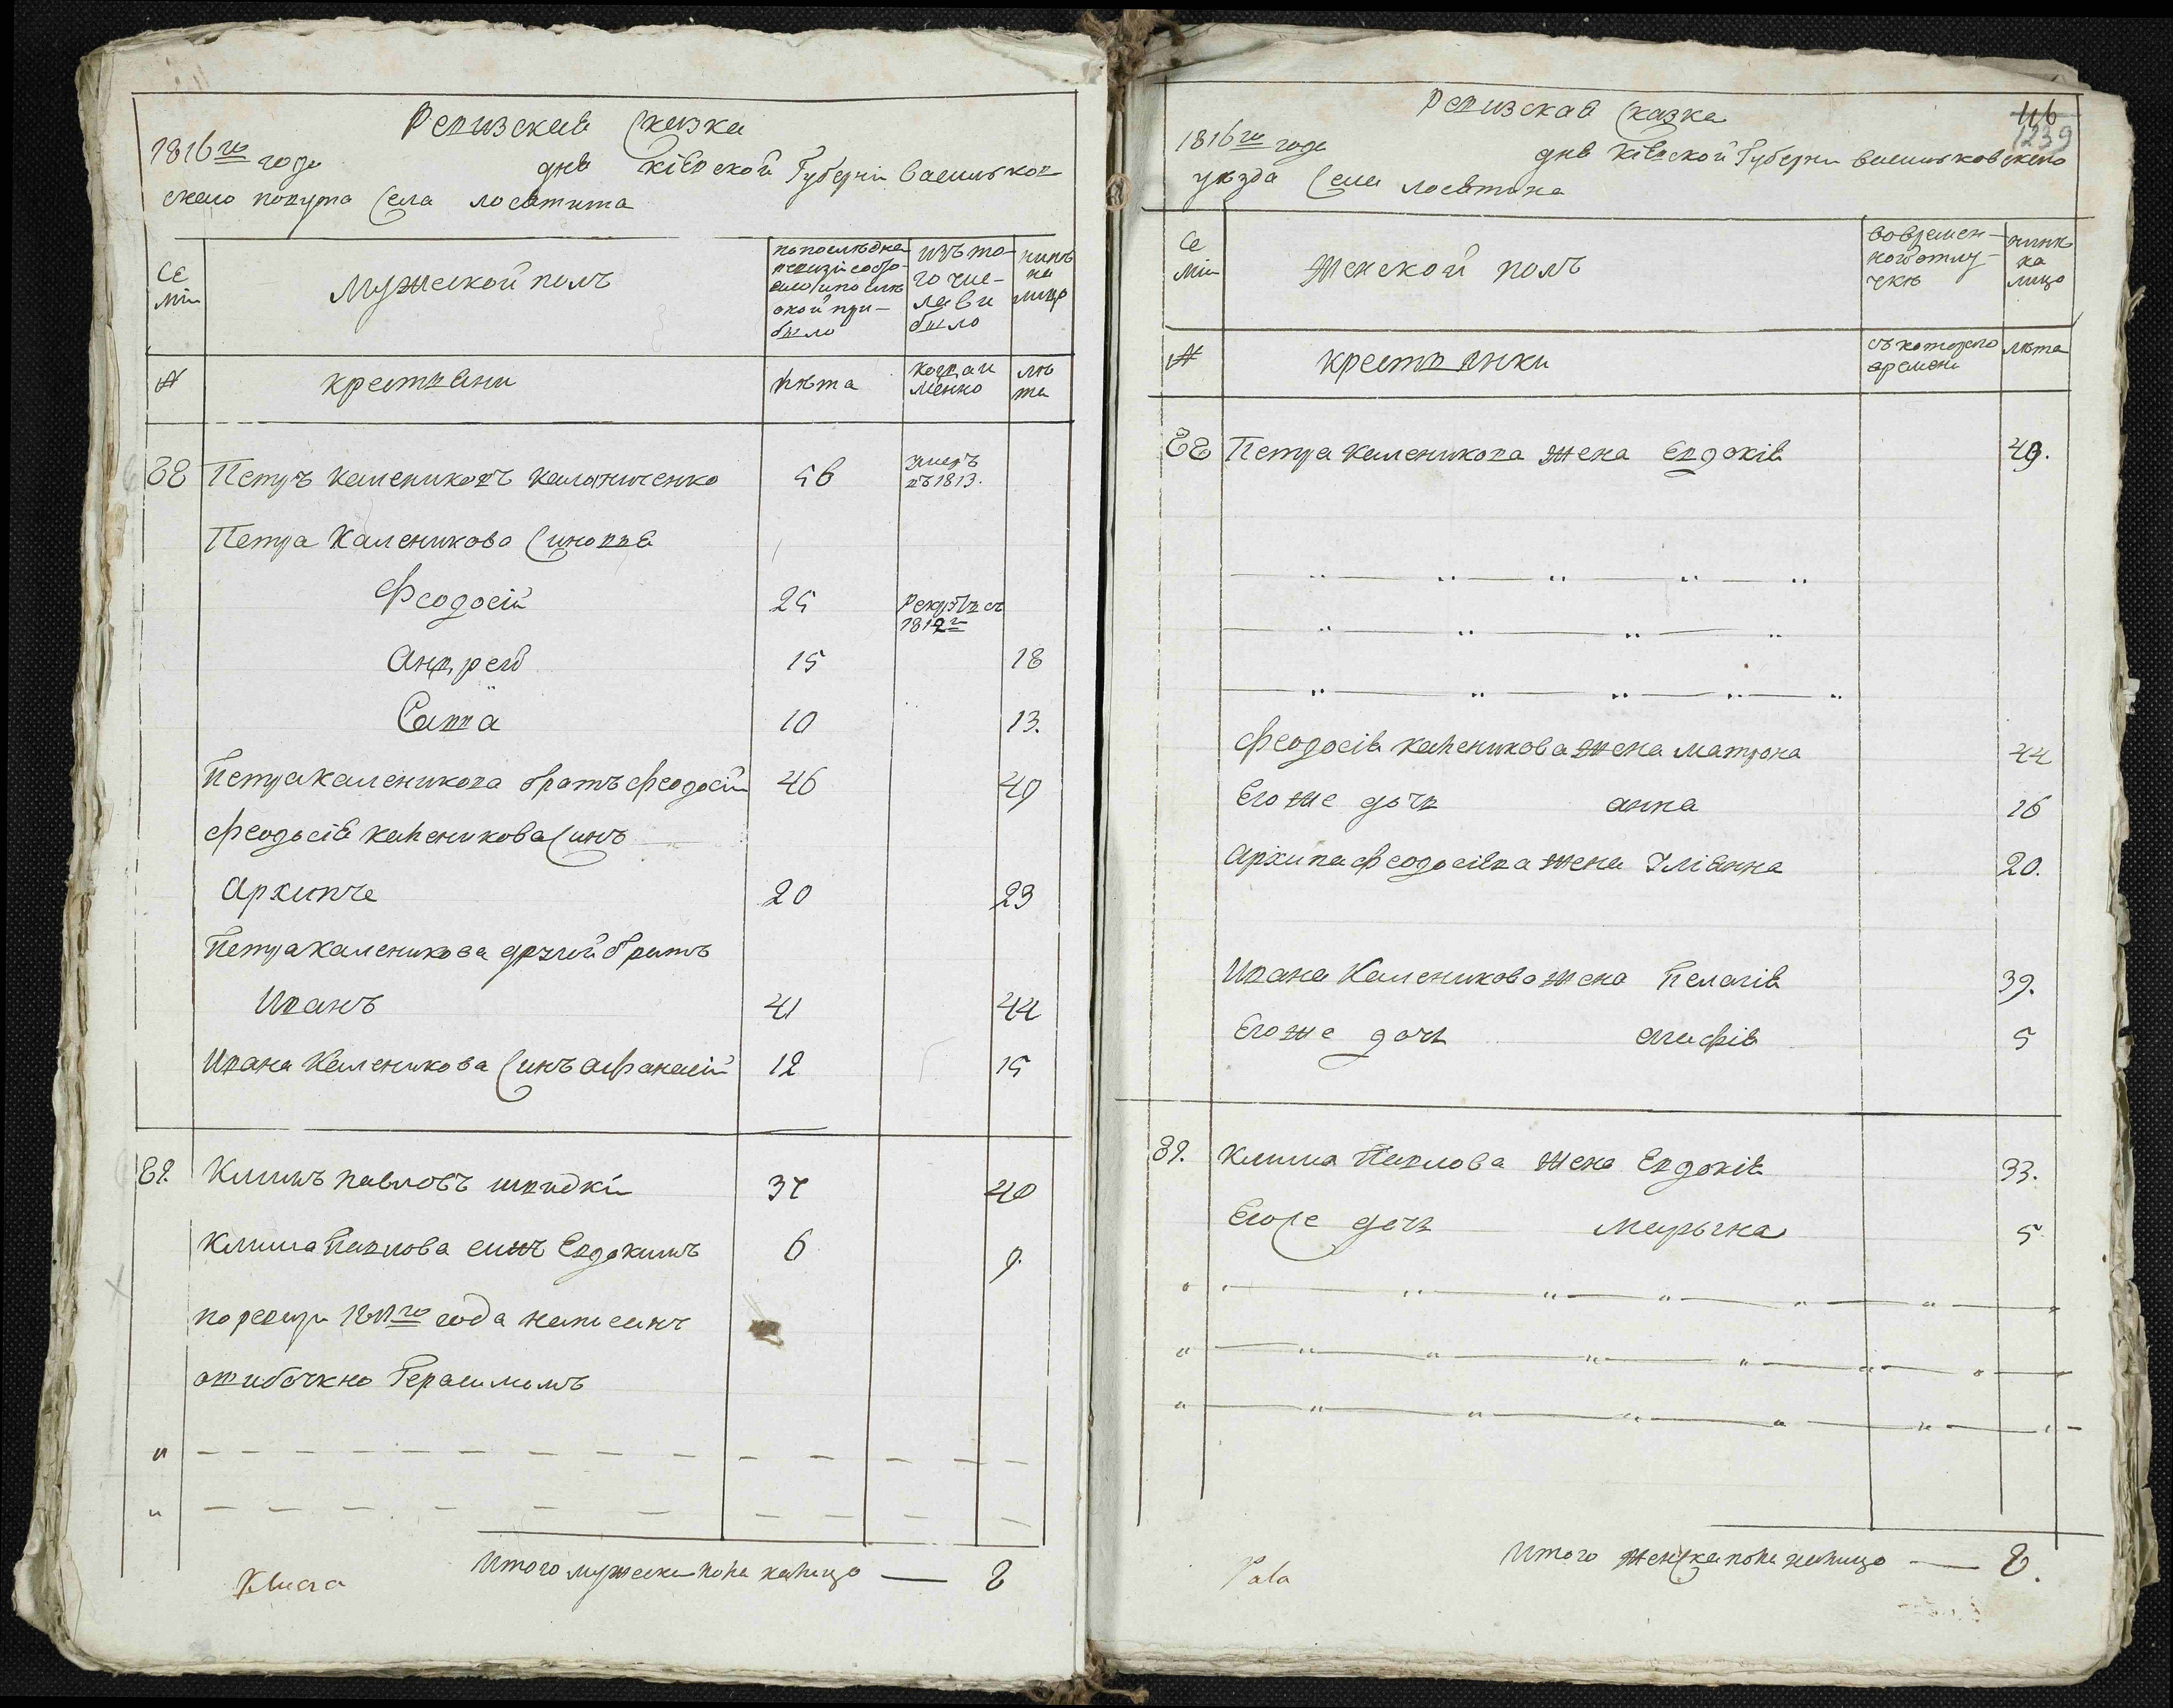 Ревизская Сказка
1816го года дня Кіевской Губерніи Васильков-
скаго повута Села лосятина
Се
міи
Мужеской полъ
по послѣдней
ревизіи состо-
яло и послѣ
оной при-
было
изъ то-
го чис-
ла вы
было
нынѣ
на
лицо
№
крестьяни
лѣта
когда и
менно
лѣ
та
88 Петръ Калениковъ Калениченко 56 умеръ
въ 1813.
Петра Каленикова Синовья
Феодосій 25 рекрутъ въ
1812го
Андрей 15 18
Савва 10 13.
Петра Каленикова братъ Феодосій 46 49
Феодосія Каленикова Синъ
Архипъ 20 23
Петра Каленикова другій братъ
Иванъ 41 44
Ивана Каленикова Синъ Афанасій 12 15
89. Климъ Павловъ швидкій 37 40
Клима Павлова синъ Евдокимъ 6 9.
по ревизіи 1811го года написанъ
ошибочно Герасимомъ
Итого мужеска пола налицо — 8
Ревизская Сказка
116
1239
1816го года дня Кіевской Губерніи Васильковскаго
уѣзда Села лосятина
Се
міи
Женской полъ
во времен-
ной отлу-
чкѣ
нынѣ
на
лицо
№
крестьянки
съ котораго
времени
лѣта
88 Петра Каленикова жена Евдокія 49.
Феодосія Каленикова жена Матрона 44
Его же дочь анна 16
Архипа Феодосіева жена Уліянна 20.
Ивана Каленикова жена Пелагія 39.
Его же дочь агафія 5
89. Клима Павлова жена Евдокія 33.
Его же дочь Марьяна 5
Итого женска пола налицо — 8.